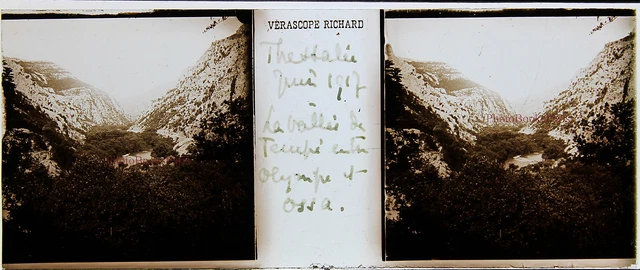 VÉRASCOPE RICHARD
Thessalie
Juin 1917
La vallée de
Tempé entre
Olympe et
Ossa.